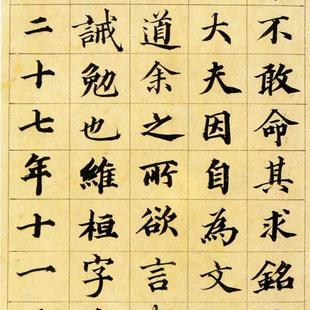 不敢命其求銘
大夫因自為文
道余之所欲言
誡勉也維桓字
二十七年十一